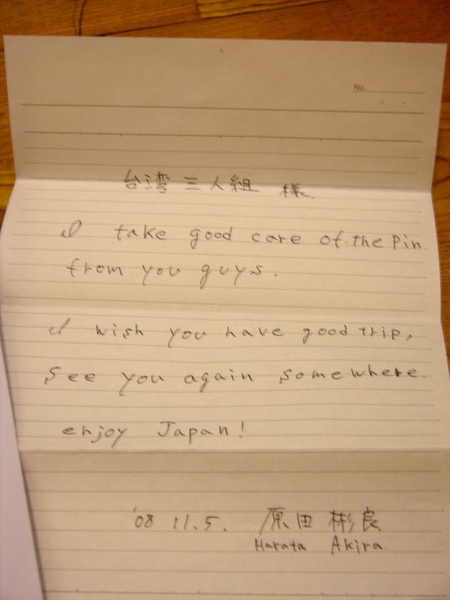 No.
台湾 三人組 様
I take good care of the Pin
from you guys.
I wish you have good trip,
See you again somewhere.
enjoy Japan!
'08 11. 5. 原田 彬良
Harata Akira